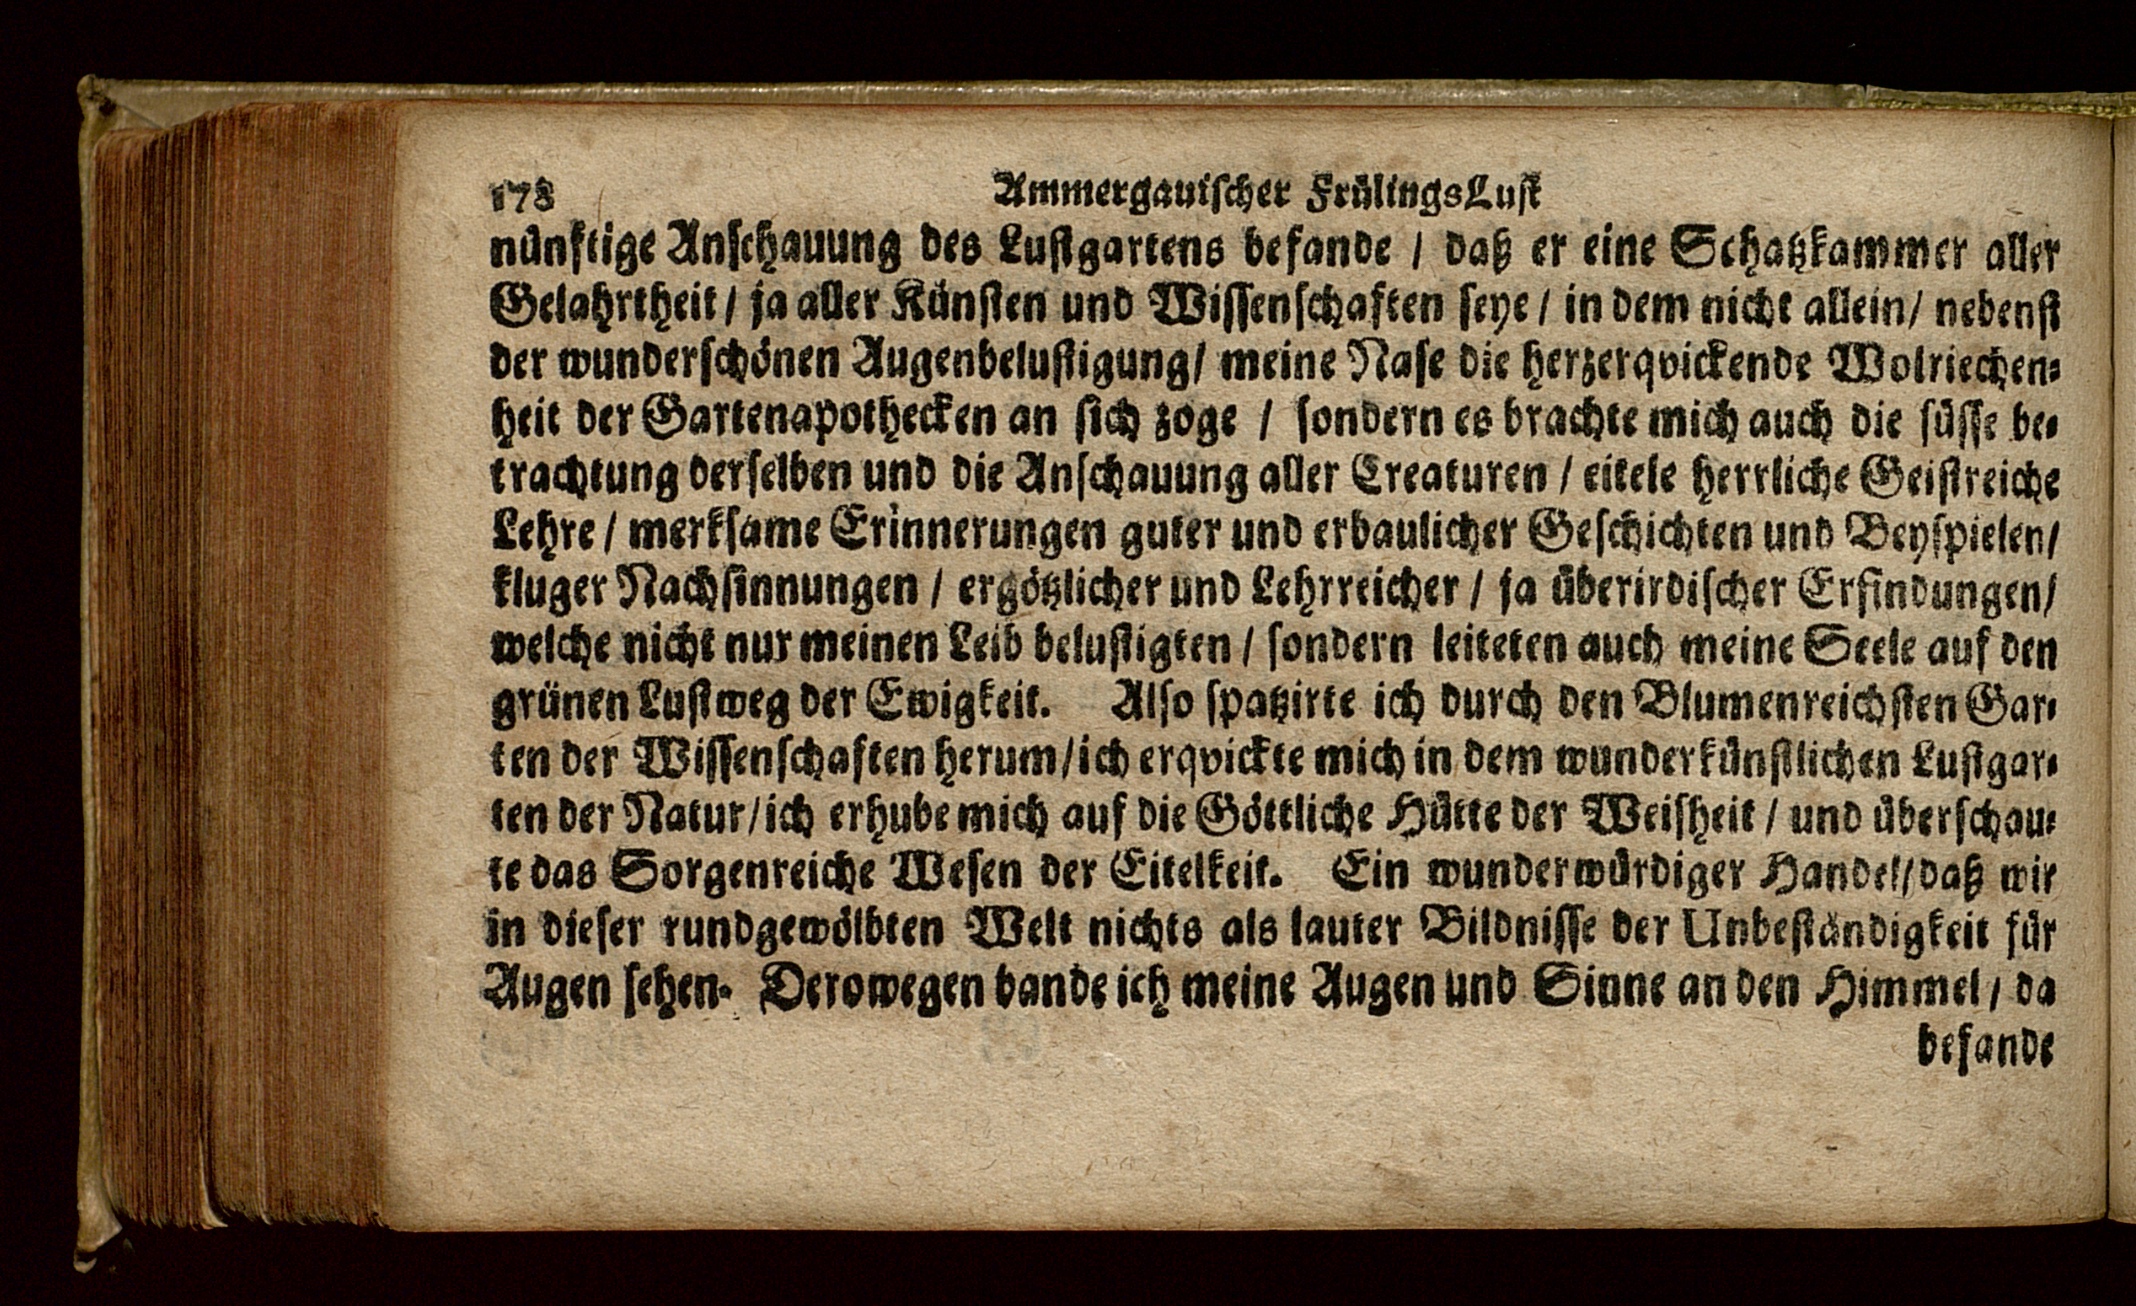 178 Ammergauiſcher FrülingsLuſt
nünftige Anſchauung des Luſtgartens befande / daß er eine Schatzkammer aller
Gelahrtheit / ja aller Künſten und Wiſſenſchaften ſeye / in dem nicht allein / nebenſt
der wunderſchönen Augenbeluſtigung / meine Naſe die herzerqvickende Wolriechen-
heit der Gartenapothecken an ſich zoge / ſondern es brachte mich auch die ſüſſe be-
trachtung derſelben und die Anſchauung aller Creaturen / eitele herrliche Geiſtreiche
Lehre / merkſame Erinnerungen guter und erbaulicher Geſchichten und Beyſpielen /
kluger Nachſinnungen / ergötzlicher und Lehrreicher / ja überirdiſcher Erfindungen /
welche nicht nur meinen Leib beluſtigten / ſondern leiteten auch meine Seele auf den
grünen Luſtweg der Ewigkeit. Alſo ſpatzirte ich durch den Blumenreichſten Gar-
ten der Wiſſenſchaften herum / ich erqvickte mich in dem wunderkünſtlichen Luſtgar-
ten der Natur / ich erhube mich auf die Göttliche Hütte der Weiſheit / und überſchau-
te das Sorgenreiche Weſen der Eitelkeit. Ein wunderwürdiger Handel / daß wir
in dieſer rundgewölbten Welt nichts als lauter Bildniſſe der Unbeſtändigkeit für
Augen ſehen. Derowegen bande ich meine Augen und Sinne an den Himmel / da
befande